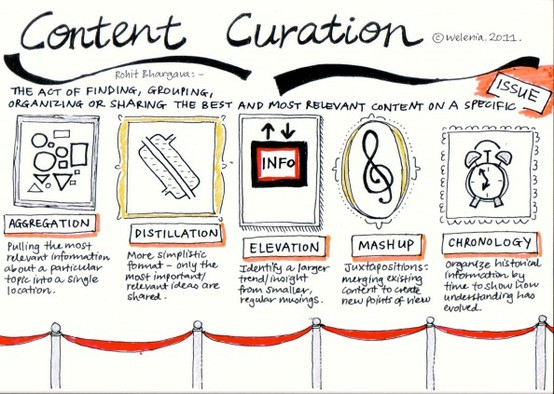 Content Curation
© welenia. 2011.
Rohit Bhargava: -
THE ACT OF FINDING, GROUPING,
ORGANIZING OR SHARING THE BEST AND MOST RELEVANT CONTENT ON A SPECIFIC -
ISSUE
AGGREGATION
Pulling the most
relevant information
about a particular
topic into a single
location.
DISTILLATION
More simplistic
format - only the
most important/
relevant ideas are
shared.
INFO
ELEVATION
Identify a larger
trend/insight
from smaller,
regular musings.
MASHUP
Juxtapositions:
merging existing
content to create
new points of view
CHRONOLOGY
Organize historical
information by
time to show how
understanding has
evolved.